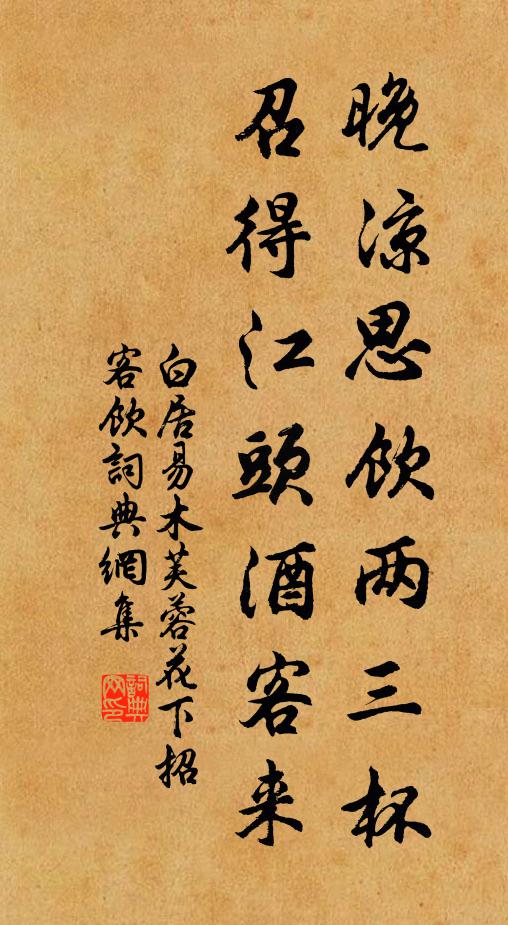 晚凉思飲两三杯
召得江頭酒客来
白居易木芙蓉花下招
客飲詞典網集
詞典
网印